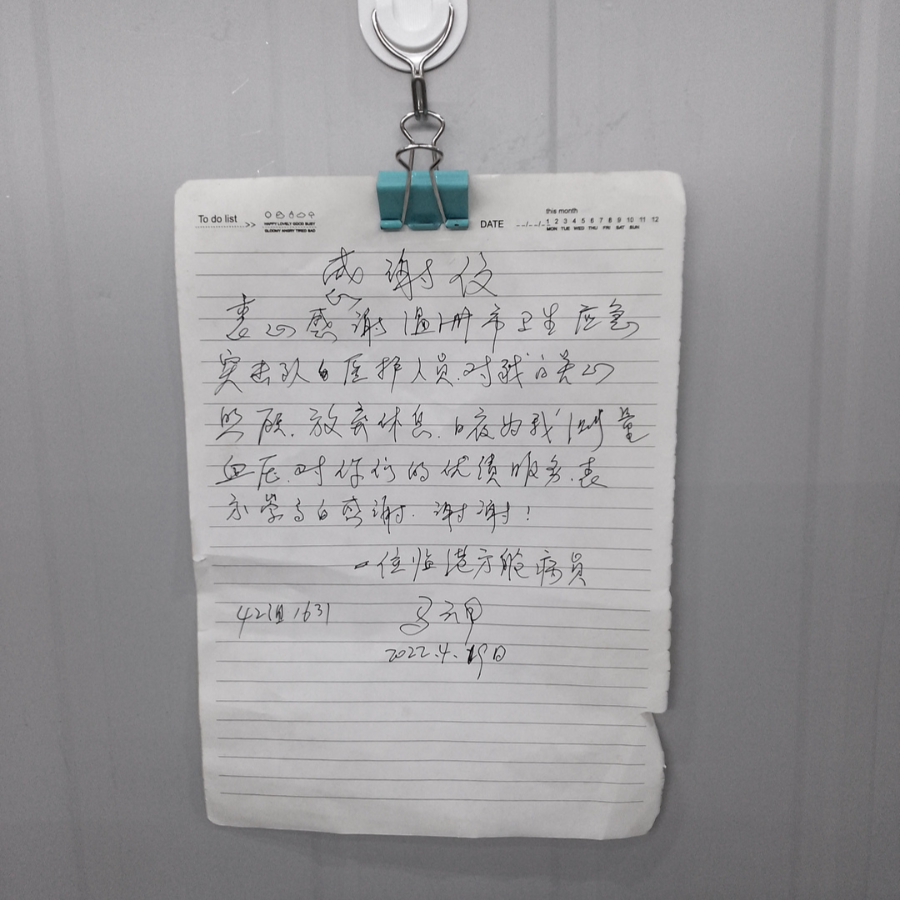 To do list >> HAPPY LOVELY GOOD BUSY
GLOOMY ANGRY TIRED SAD
DATE --/--/-- this month
1 2 3 4 5 6 7 8 9 10 11 12
MON TUE WED THU FRI SAT SUN
感谢信
衷心感谢温州市卫生应急
突击队的医护人员.对我的关心
照顾.放弃休息.日夜为我测量
血压.对你们的优质服务.表
示崇高的感谢.谢谢!
一位临港方舱病员
42组1631
2022.4.19日